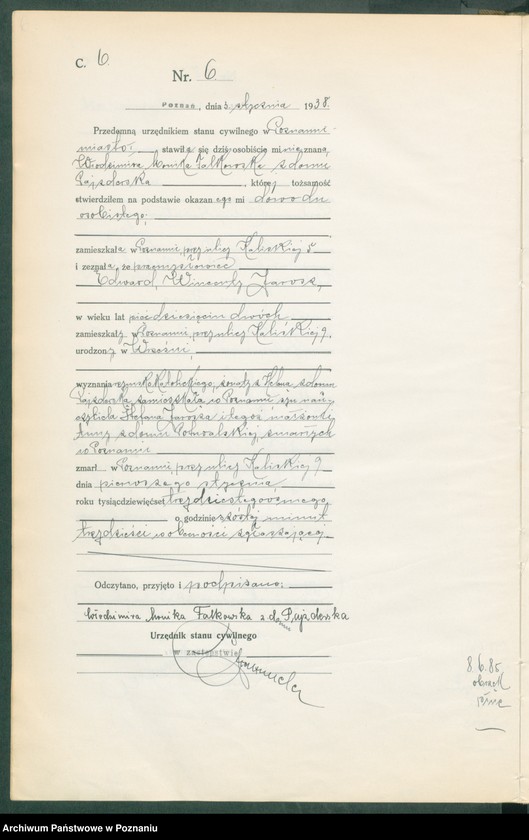 C. 6.
Nr. 6.
Poznań, dnia 3 stycznia 1938.
Przedemną urzędnikiem stanu cywilnego w Poznaniu
miasto, stawiła się dziś osobiście mi nieznana,
Włodzimira Monika Falkowska z domu
Pajzderska, której tożsamość
stwierdziłem na podstawie okazanego mi dowodu
osobistego,
zamieszkała w Poznaniu, przy ulicy Kaliskiej 5
i zeznała, że przemysłowiec
Edward, Wincenty Jarosz,
w wieku lat pięćdziesięciu dwóch,
zamieszkały w Poznaniu, przy ulicy Kaliskiej 9,
urodzony w Wrześni,
wyznania rzymskokatolickiego, żonaty z z domu
Pajzderską zamieszkałą w Poznaniu, syn
Stefana Jarosza i tegoż małżonki
Anny z domu zmarłych
w Poznaniu
zmarł w Poznaniu, przy ulicy Kaliskiej 9
dnia pierwszego stycznia
roku tysiącdziewięćset trzydziestegoósmego
o godzinie szóstej minut
trzydzieści w obecności zgłaszającej.
Odczytano, przyjęto i podpisano:
Włodzimira Monika Falkowska z domu Pajzderska
Urzędnik stanu cywilnego
w zastępstwie
8.6.85
Archiwum Państwowe w Poznaniu